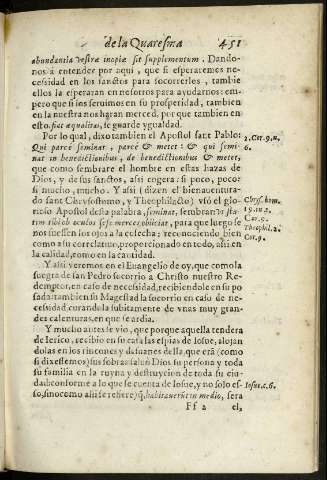 de la Quaresma 451
abundantia vestræ inopiæ sit supplementum. Dando-
nos à entender por aqui, que si esperaremos ne-
cessidad en los sanctos para socorrerles, tambiē
ellos la esperaran en nosotros para ayudarnos: em-
pero que si les seruimos en su prosperidad, tambien
en la nuestra nos haran merced, por que tambien en
esto, fiat æqualitas, se guarde ygualdad.
Por lo qual, dixo tambien el Apostol sant Pablo:
2.Cor.9.n.
Qui parcè seminat, parcè & metet: & qui semi-
6.
nat in benedictionibus, de benedictionibus & metet,
que como sembrare el hombre en estas hazas de
Dios, y de sus sanctos, assi cogera: si poco, poco:
si mucho, mucho. Y assi (dizen el bienauentura-
do sant Chrysostomo, y Theophilacto) vsò el glo-
Chrys. hom.
rioso Apostol desta palabra, seminat, sembrar:
19. in 2.
tim tibi ob oculos sese merces obijciat, para que luego se
Cor. 9.
nos fuessen los ojos a la cosecha: reconociendo bien
Theophil. 2.
como a su correlatiuo, proporcionado en todo, assi en
Cor. 9.
la calidad, como en la cantidad.
Y assi veremos en el Euangelio de oy, que como la
suegra de san Pedro socorrio a Christo nuestro Re-
demptor, en caso de necessidad, recibiendole en su po
sada: tambiē su Magestad la socorrio en caso de ne-
cessidad, curandola subitamente de vnas muy gran-
des calenturas, en que se ardia.
Y mucho antes se vio, que porque aquella tendera
de Ierico, recibio en su casa las espias de Iosue, alojan
dolas en los rincones y desuanes della, que erā (como
si dixessemos) sus sobras: saluò Dios su persona y toda
su familia en la ruyna y destruycion de toda su ciu-
dad: conforme a lo que se cuenta de Iosue, y no solo es-
Iosue.c.6.
so, sino como alli se refiere) q̄, habitauerūt in medio, sera
Ff 2 el,